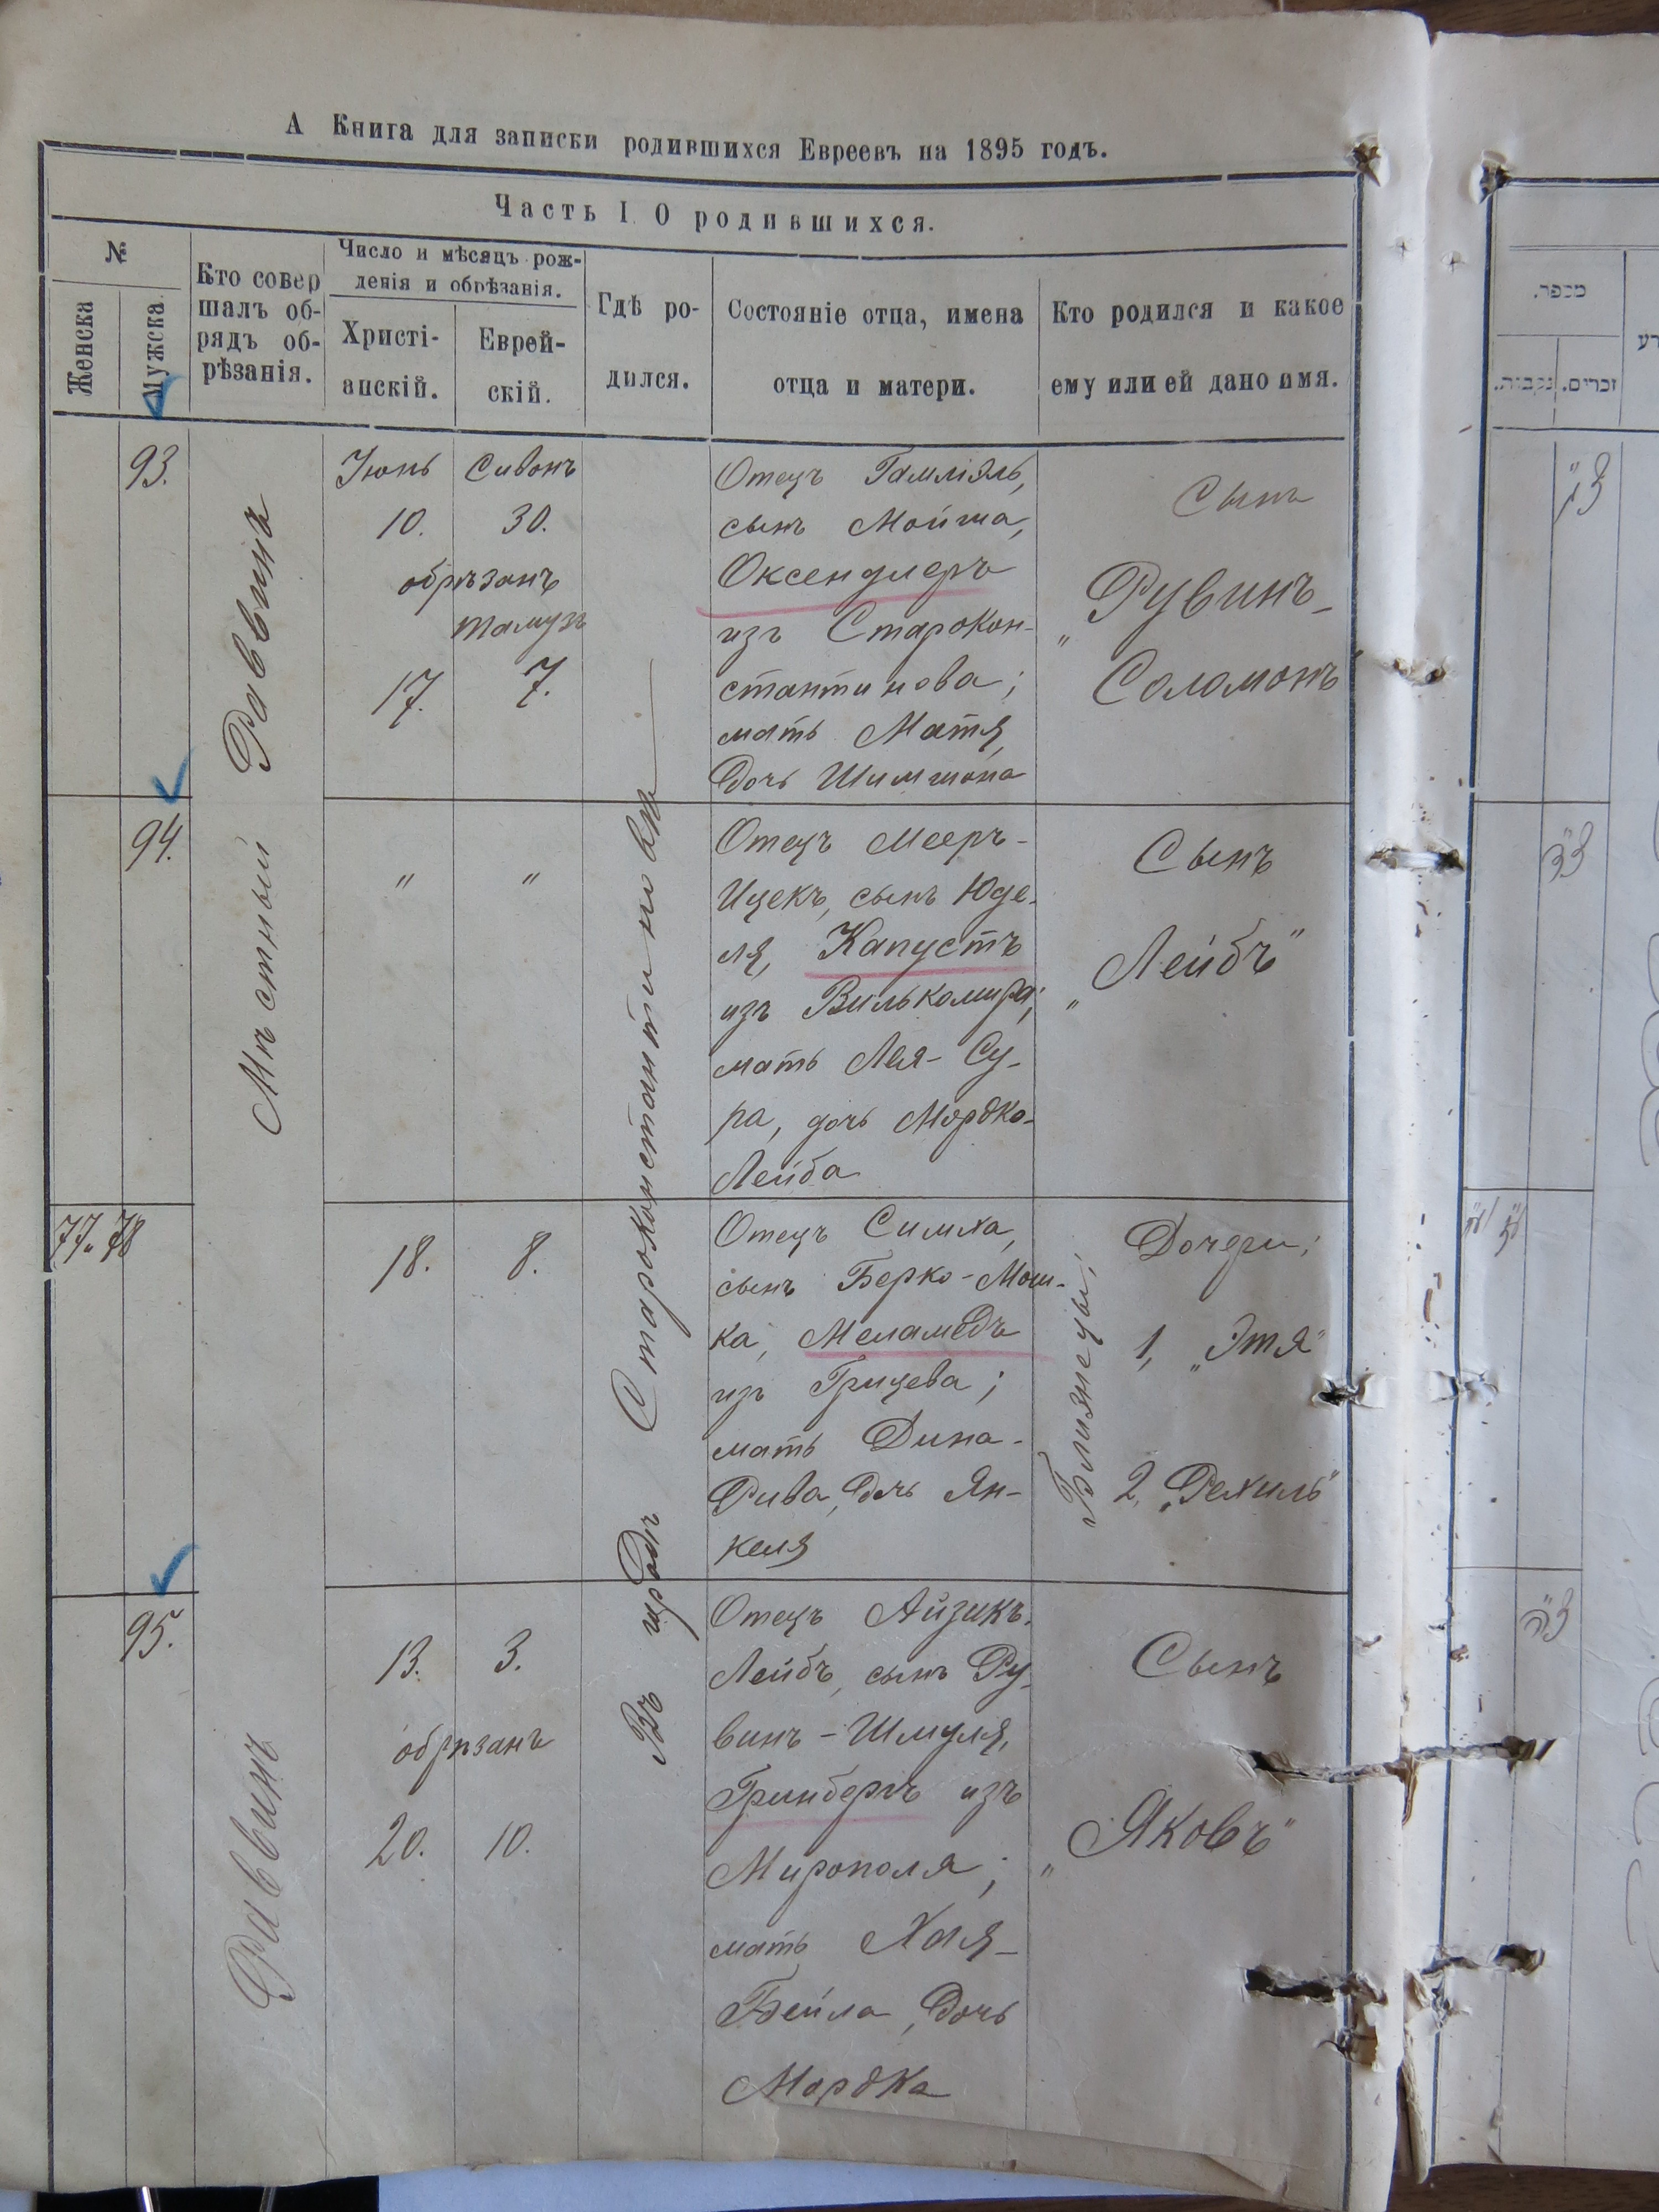 А Книга для записки родившихся Евреевъ на 1895 годъ.
Часть I О родившихся.
№
Женска
Мужска
Кто совер
шалъ об-
рядъ об-
рѣзанія.
Число и мѣсяцъ рож-
денія и обрѣзанія.
Христі-
анскій.
Еврей-
скій.
Гдѣ ро-
дился.
Состояніе отца, имена
отца и матери.
Кто родился и какое
ему или ей дано имя.
Мѣстный Раввинъ
Въ городѣ Староконстантиновѣ
93.
Іюнь
10.
Сивонъ
30.
обрѣзанъ
тамузъ
17.
7.
Отецъ Гамліэль,
сынъ Мойша,
Оксендлеръ
изъ Старокон-
стантинова;
мать Матя,
дочь Шимшона
Сынъ
„Рувинъ-
Соломонъ
94.
"
"
Отецъ Мееръ-
Ицекъ, сынъ Юде-
ля, Капустъ
изъ Вилькомира;
мать Лея-Су-
ра, дочь Мордко-
Лейба
Сынъ
„Лейбъ"
77. 78
18.
8.
Отецъ Симха,
сынъ Берко-Мош-
ка, Меламедъ
изъ Грицева;
мать Дина-
Рива, дочь Ян-
келя
Близнецы;
Дочери;
1, „Этя"
2, „Рехиль"
95.
Раввинъ
13.
3.
обрѣзанъ
20.
10.
Отецъ Айзикъ-
Лейбъ, сынъ Ру-
винъ-Шмуля,
Гринбергъ изъ
Мирополя;
мать Хая-
Бейла, дочь
Мордка
Сынъ
„Яковъ"
מספר.
זכרים.
נקבות.
צג
צד
עז עח
צה